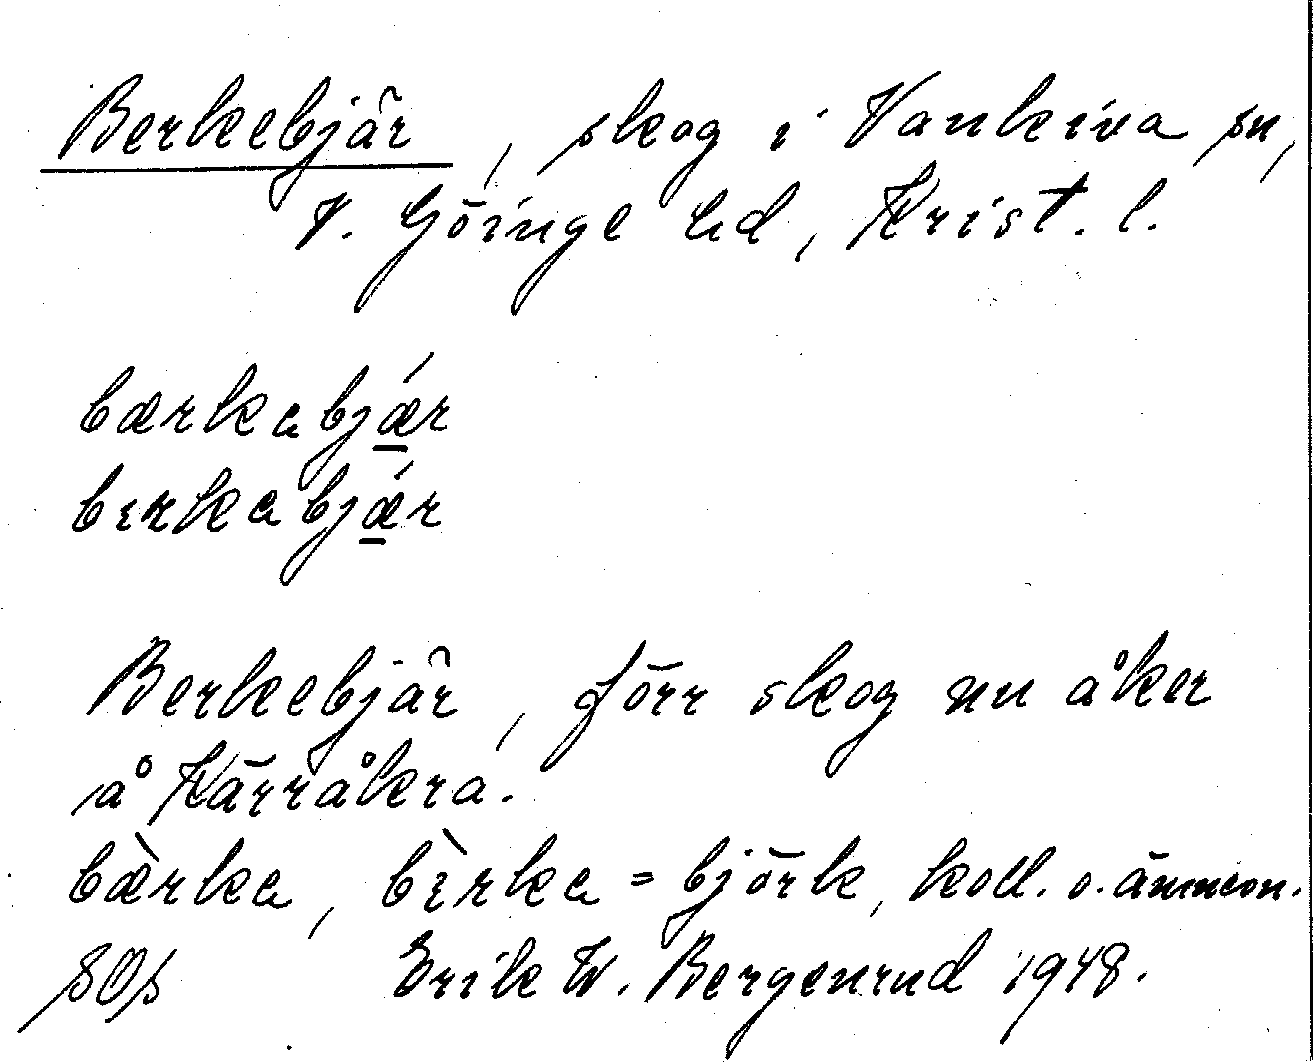 Berkebjär, skog i Vankiva sn,
V. Göinge hd, Krist. l.
bærkabjǽr
bɪrkabjǽr
Berkebjär, förr skog nu åker
på Kärråkra.
bæ̀rka, bɪ̀rka = björk, koll. o. ämneon.
Erik W. Bergenrud 1948.